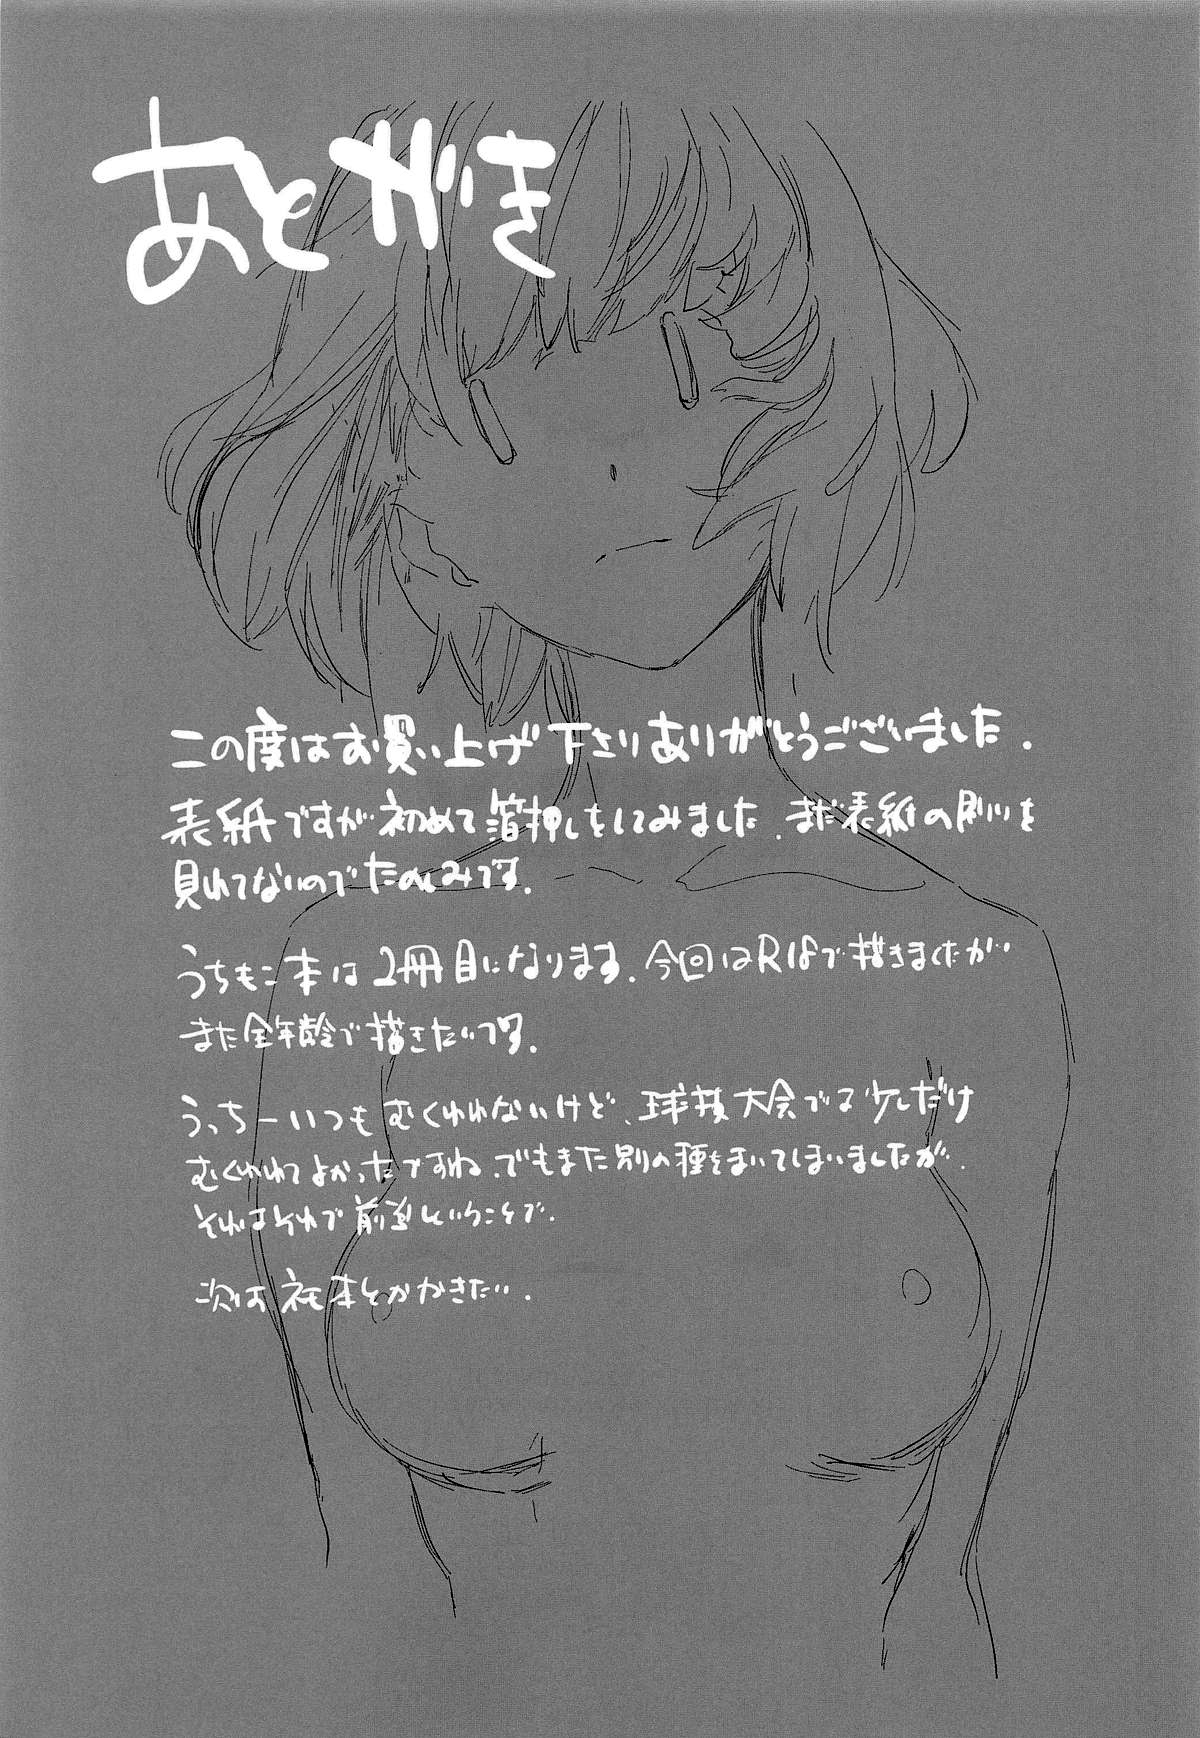 あとがき
この度はお買い上げ下さりありがとうございました.
表紙ですが初めて箔押しをしてみました.まだ表紙の刷りを
見れてないのでたのしみです.
うちもこ本は2冊目になります.今回はR18で描きましたが
また全年齢で描きたいです.
うっちーいつもむくわれないけど、球技大会でる少しだけ
むくわれてよかったですね.でもまた別の種をまいてしまいましたが.
それはそれで前進ということで.
次はネモ本とかかきたい.